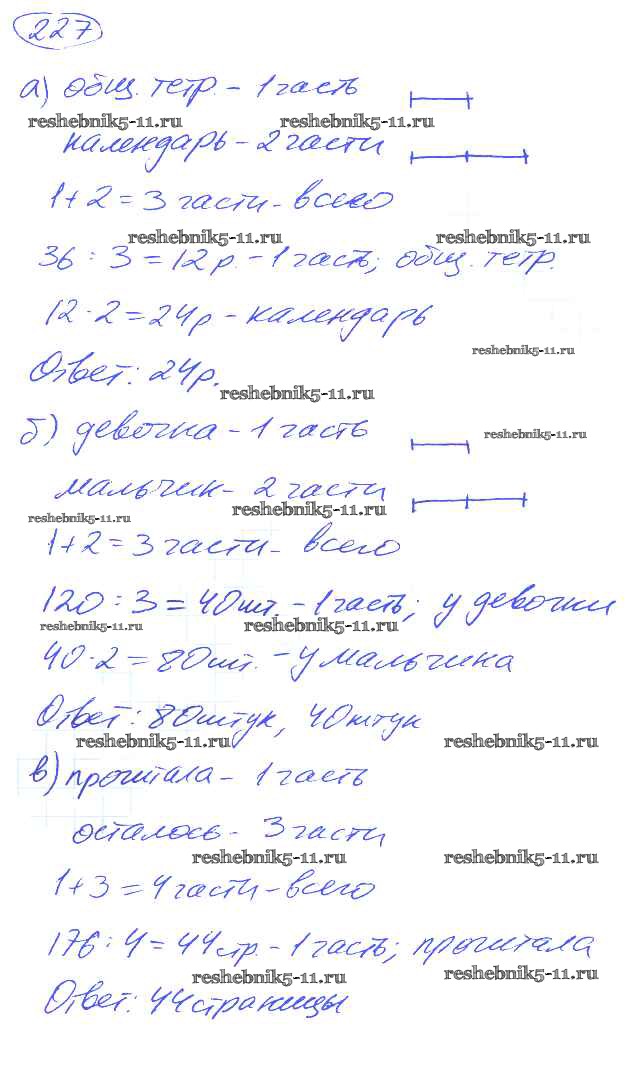 227
а) общ. тетр. - 1 часть
reshebnik5-11.ru reshebnik5-11.ru
календарь - 2 части
1 + 2 = 3 части - всего
reshebnik5-11.ru reshebnik5-11.ru
36 : 3 = 12 р. - 1 часть; общ. тетр.
12 · 2 = 24 р - календарь
reshebnik5-11.ru
Ответ: 24 р.
reshebnik5-11.ru
б) девочка - 1 часть
reshebnik5-11.ru
мальчик - 2 части
reshebnik5-11.ru
reshebnik5-11.ru
1 + 2 = 3 части - всего
120 : 3 = 40 шт. - 1 часть; у девочки
reshebnik5-11.ru reshebnik5-11.ru
40 · 2 = 80 шт. - у мальчика
Ответ: 80 штук, 40 штук
reshebnik5-11.ru reshebnik5-11.ru
в) прочитала - 1 часть
осталось - 3 части
reshebnik5-11.ru reshebnik5-11.ru
1 + 3 = 4 части - всего
176 : 4 = 44 стр. - 1 часть; прочитала
reshebnik5-11.ru reshebnik5-11.ru
Ответ: 44 страницы